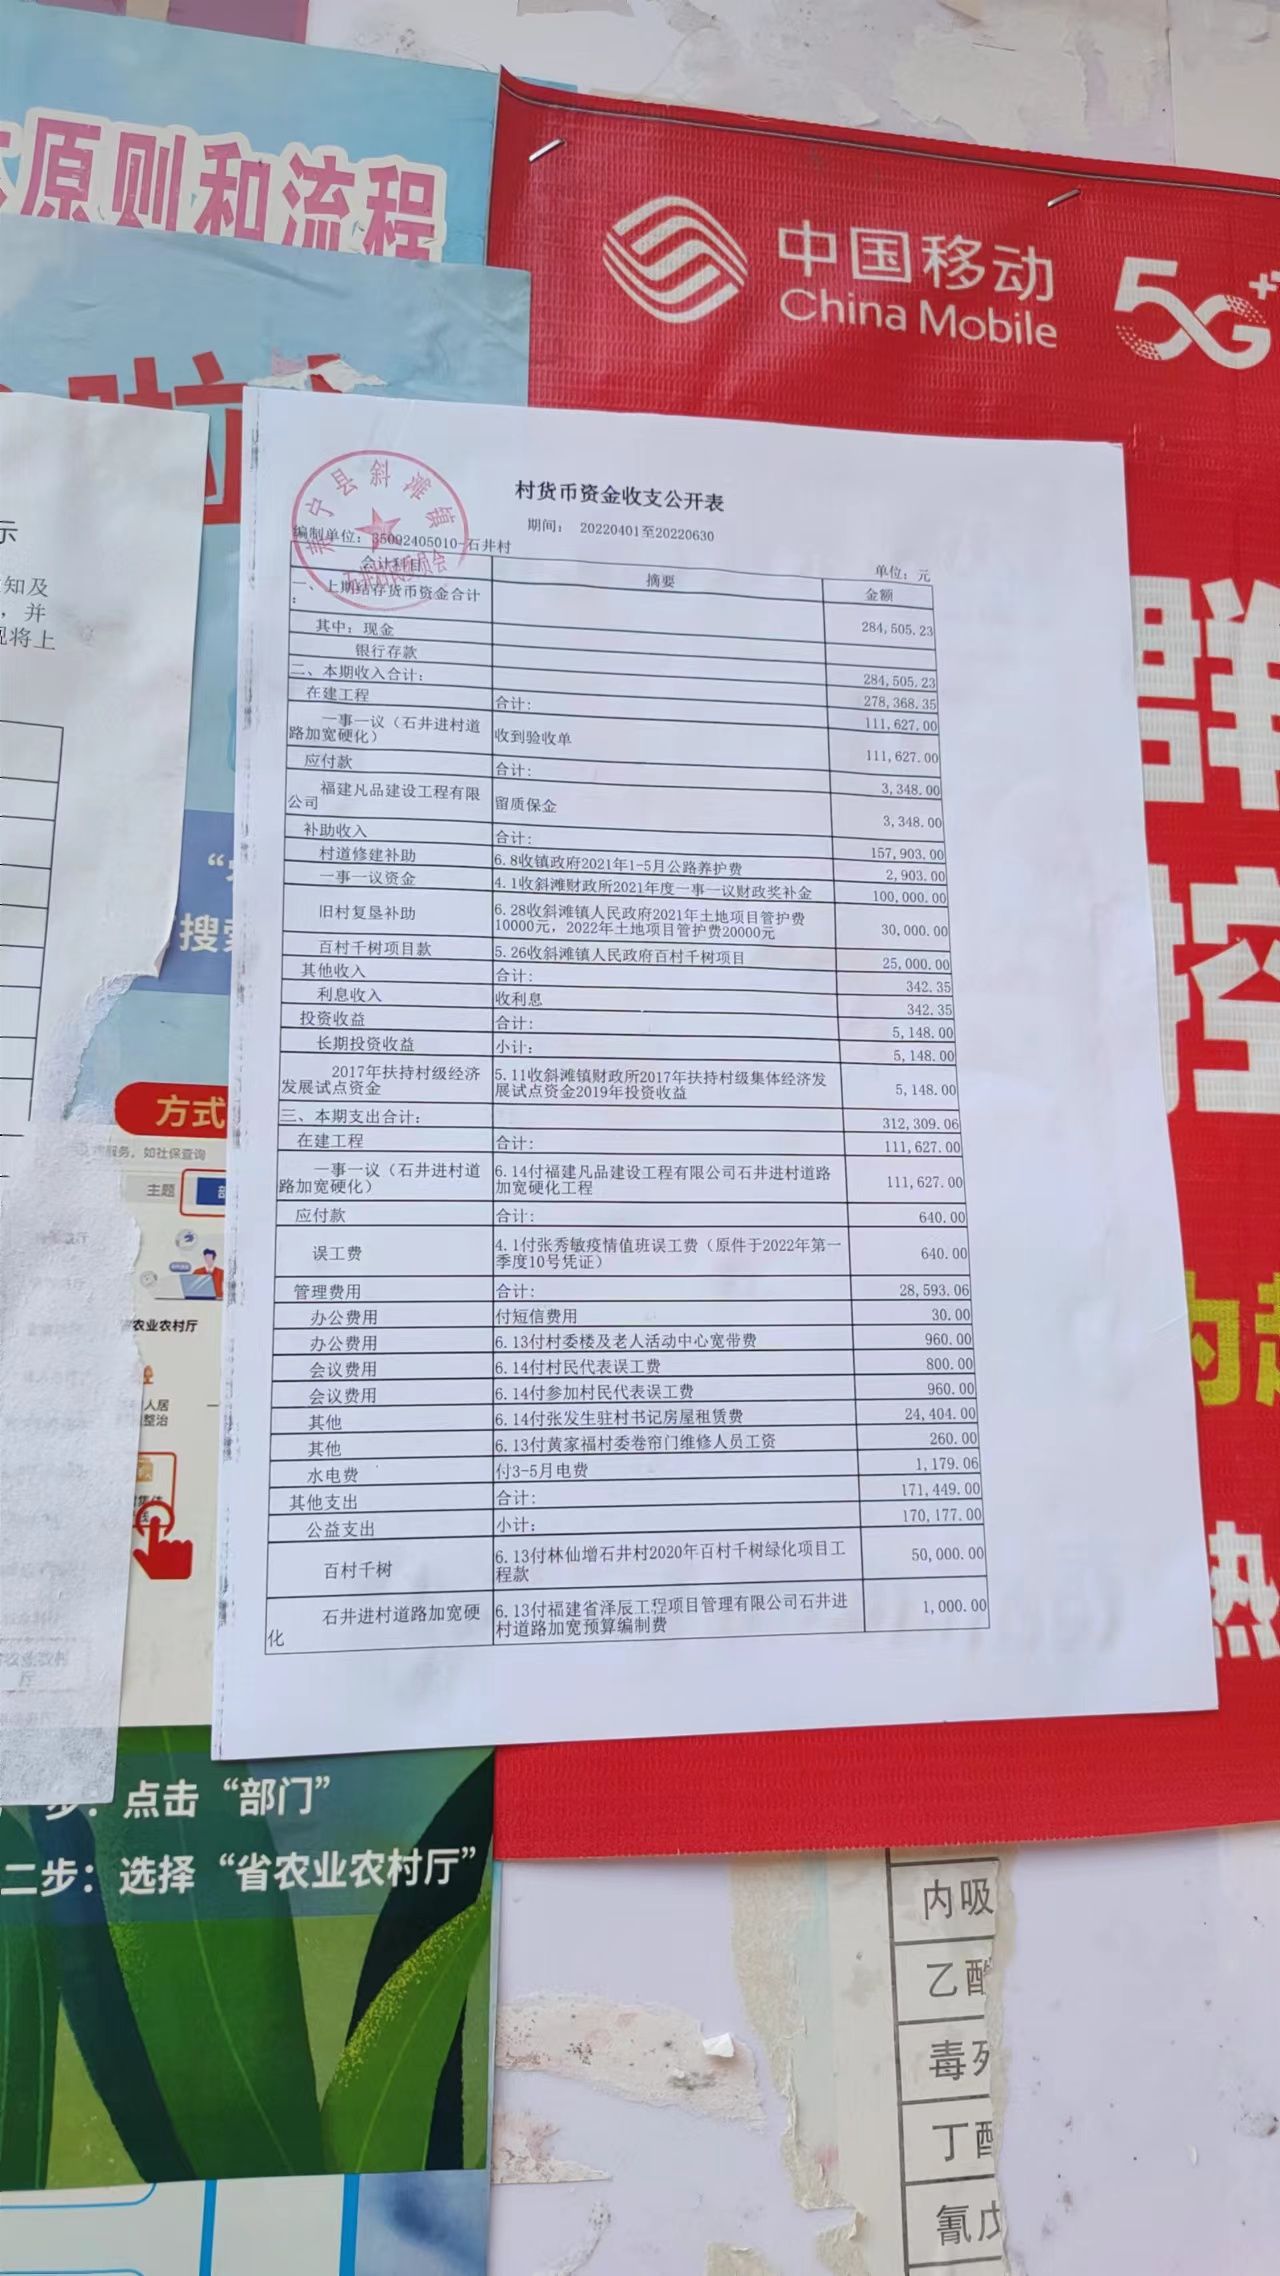 原则和流程
中国移动
China Mobile
5G+
村货币资金收支公开表
期间： 20220401至20220630
编制单位：35092405010-石井村
单位：元
会计科目 摘要 金额
一、上期结存货币资金合计： 284,505.23
其中：现金
银行存款 284,505.23
二、本期收入合计： 278,368.35
在建工程 合计： 111,627.00
一事一议（石井进村道路加宽硬化） 收到验收单 111,627.00
应付款 合计： 3,348.00
福建凡品建设工程有限公司 留质保金 3,348.00
补助收入 合计： 157,903.00
村道修建补助 6.8收镇政府2021年1-5月公路养护费 2,903.00
一事一议资金 4.1收斜滩财政所2021年度一事一议财政奖补金 100,000.00
旧村复垦补助 6.28收斜滩镇人民政府2021年土地项目管护费10000元，2022年土地项目管护费20000元 30,000.00
百村千树项目款 5.26收斜滩镇人民政府百村千树项目 25,000.00
其他收入 合计： 342.35
利息收入 收利息 342.35
投资收益 合计： 5,148.00
长期投资收益 小计： 5,148.00
2017年扶持村级经济发展试点资金 5.11收斜滩镇财政所2017年扶持村级集体经济发展试点资金2019年投资收益 5,148.00
三、本期支出合计： 312,309.06
在建工程 合计： 111,627.00
一事一议（石井进村道路加宽硬化） 6.14付福建凡品建设工程有限公司石井进村道路加宽硬化工程 111,627.00
应付款 合计： 640.00
误工费 4.1付张秀敏疫情值班误工费（原件于2022年第一季度10号凭证） 640.00
管理费用 合计： 28,593.06
办公费用 付短信费用 30.00
办公费用 6.13付村委楼及老人活动中心宽带费 960.00
会议费用 6.14付村民代表误工费 800.00
会议费用 6.14付参加村民代表误工费 960.00
其他 6.14付张发生驻村书记房屋租赁费 24,404.00
其他 6.13付黄家福村委卷帘门维修人员工资 260.00
水电费 付3-5月电费 1,179.06
其他支出 合计： 171,449.00
公益支出 小计： 170,177.00
百村千树 6.13付林仙增石井村2020年百村千树绿化项目工程款 50,000.00
石井进村道路加宽硬化 6.13付福建省泽辰工程项目管理有限公司石井进村道路加宽预算编制费 1,000.00
示
知及
，并
将上
搜索
方式
服务，如社保查询
主题
农业农村厅
人居
整治
步：点击“部门”
二步：选择“省农业农村厅”
内吸
乙酰
毒死
丁
氰戊
热